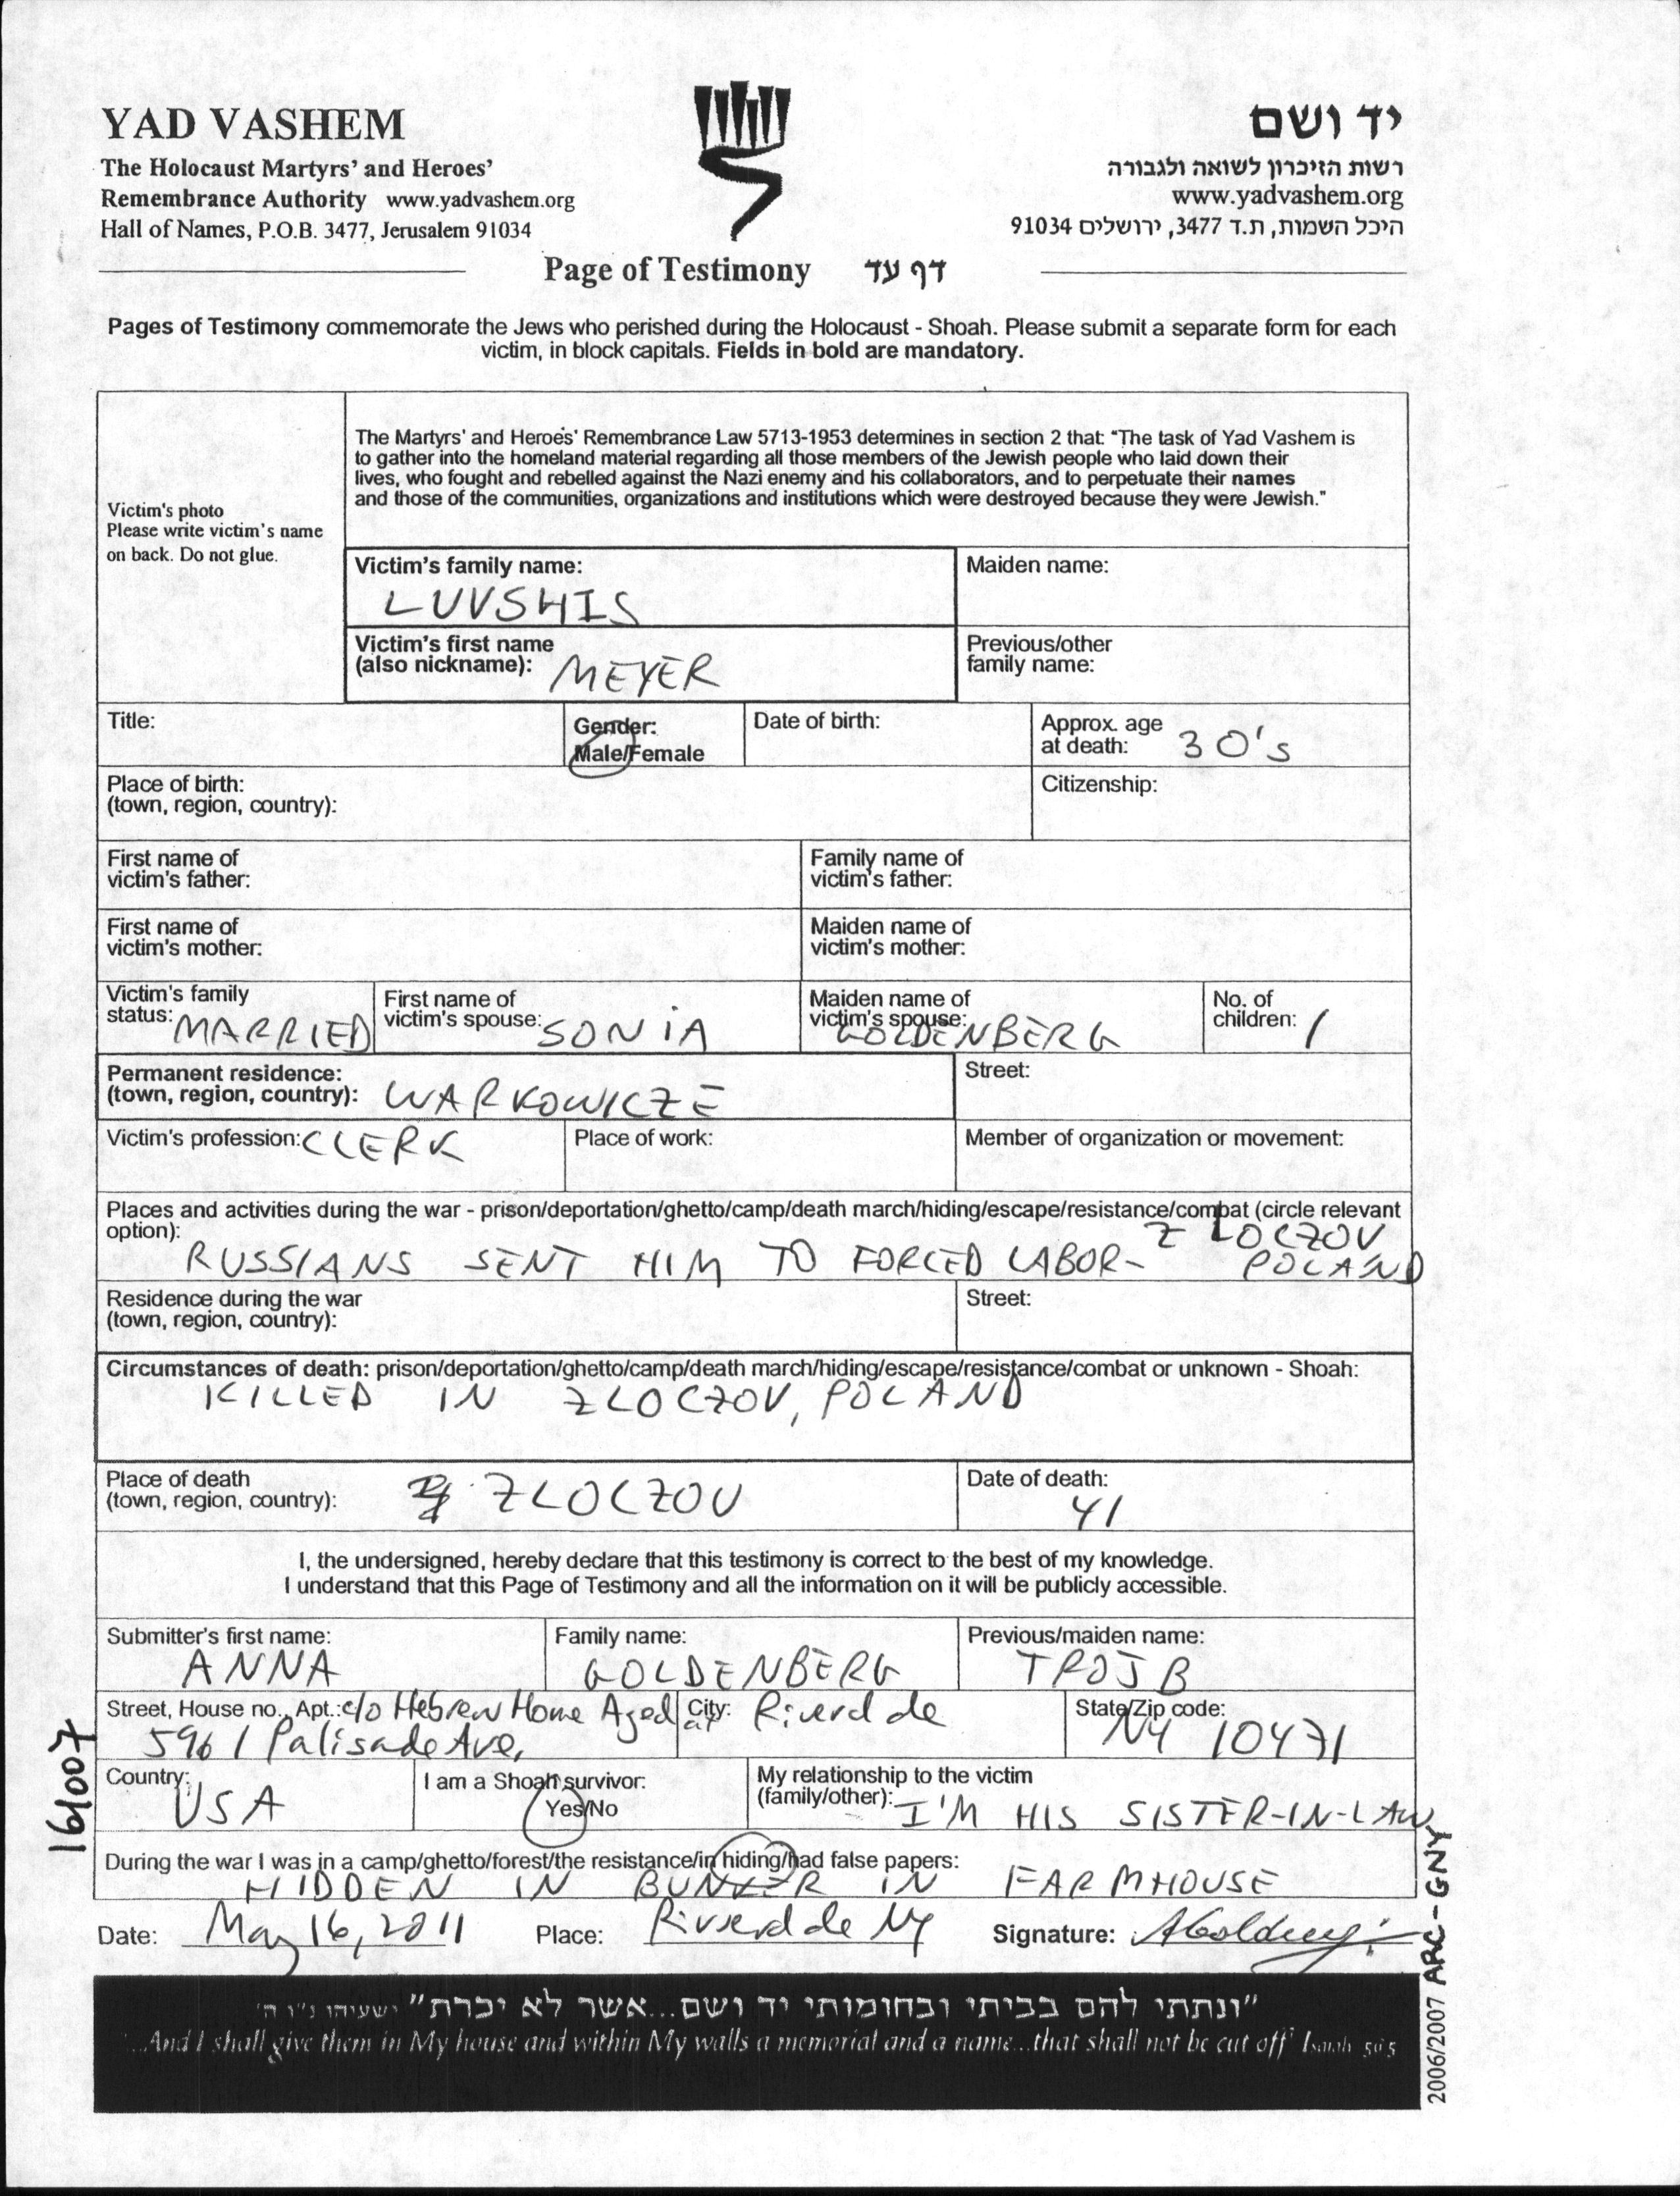 YAD VASHEM
The Holocaust Martyrs' and Heroes'
Remembrance Authority www.yadvashem.org
Hall of Names, P.O.B. 3477, Jerusalem 91034
יד ושם
רשות הזיכרון לשואה ולגבורה
www.yadvashem.org
היכל השמות, ת.ד 3477, ירושלים 91034
Page of Testimony דף עד
Pages of Testimony commemorate the Jews who perished during the Holocaust - Shoah. Please submit a separate form for each
victim, in block capitals. Fields in bold are mandatory.
Victim's photo
Please write victim's name
on back. Do not glue.
The Martyrs' and Heroes' Remembrance Law 5713-1953 determines in section 2 that: "The task of Yad Vashem is
to gather into the homeland material regarding all those members of the Jewish people who laid down their
lives, who fought and rebelled against the Nazi enemy and his collaborators, and to perpetuate their names
and those of the communities, organizations and institutions which were destroyed because they were Jewish."
Victim's family name:
LUVSHIS
Maiden name:
Victim's first name
(also nickname): MEYER
Previous/other
family name:
Title:
Gender:
Male/Female
Date of birth:
Approx. age
at death: 30's
Place of birth:
(town, region, country):
Citizenship:
First name of
victim's father:
Family name of
victim's father:
First name of
victim's mother:
Maiden name of
victim's mother:
Victim's family
status: MARRIED
First name of
victim's spouse: SONIA
Maiden name of
victim's spouse: GOLDENBERG
No. of
children: 1
Permanent residence:
(town, region, country): WARKOWICZE
Street:
Victim's profession: CLERK
Place of work:
Member of organization or movement:
Places and activities during the war - prison/deportation/ghetto/camp/death march/hiding/escape/resistance/combat (circle relevant
option):
RUSSIANS SENT HIM TO FORCED LABOR- ZLOCZOV
POLAND
Residence during the war
(town, region, country):
Street:
Circumstances of death: prison/deportation/ghetto/camp/death march/hiding/escape/resistance/combat or unknown - Shoah:
KILLED IN ZLOCZOV, POLAND
Place of death
(town, region, country): ZLOCZOV
Date of death:
41
I, the undersigned, hereby declare that this testimony is correct to the best of my knowledge.
I understand that this Page of Testimony and all the information on it will be publicly accessible.
Submitter's first name:
ANNA
Family name:
GOLDENBERG
Previous/maiden name:
TROJB
Street, House no., Apt.: c/o Hebrew Home Aged
5961 Palisade Ave,
City: at Riverdale
State/Zip code:
NY 10471
Country:
USA
I am a Shoah survivor:
Yes/No
My relationship to the victim
(family/other): I'M HIS SISTER-IN-LAW
During the war I was in a camp/ghetto/forest/the resistance/in hiding/had false papers:
HIDDEN IN BUNKER IN FARMHOUSE
Date: May 16, 2011 Place: Riverdale NY Signature:
"ונתתי להם בביתי ובחומותי יד ושם...אשר לא יכרת" ישעיהו נ"ו ה'
...And I shall give them in My house and within My walls a memorial and a name...that shall not be cut off" Isaiah 56 5
161007
2006/2007 ARC-GNY